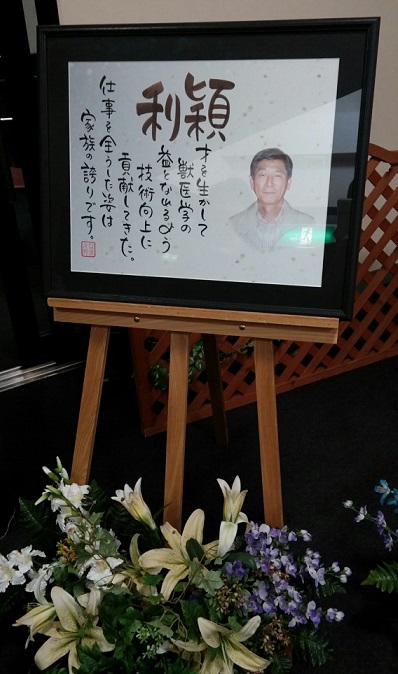 穎利
才を生かして
獣医学の
益となれるよう
技術向上に
貢献してきた。
仕事を全うした姿は
家族の誇りです。